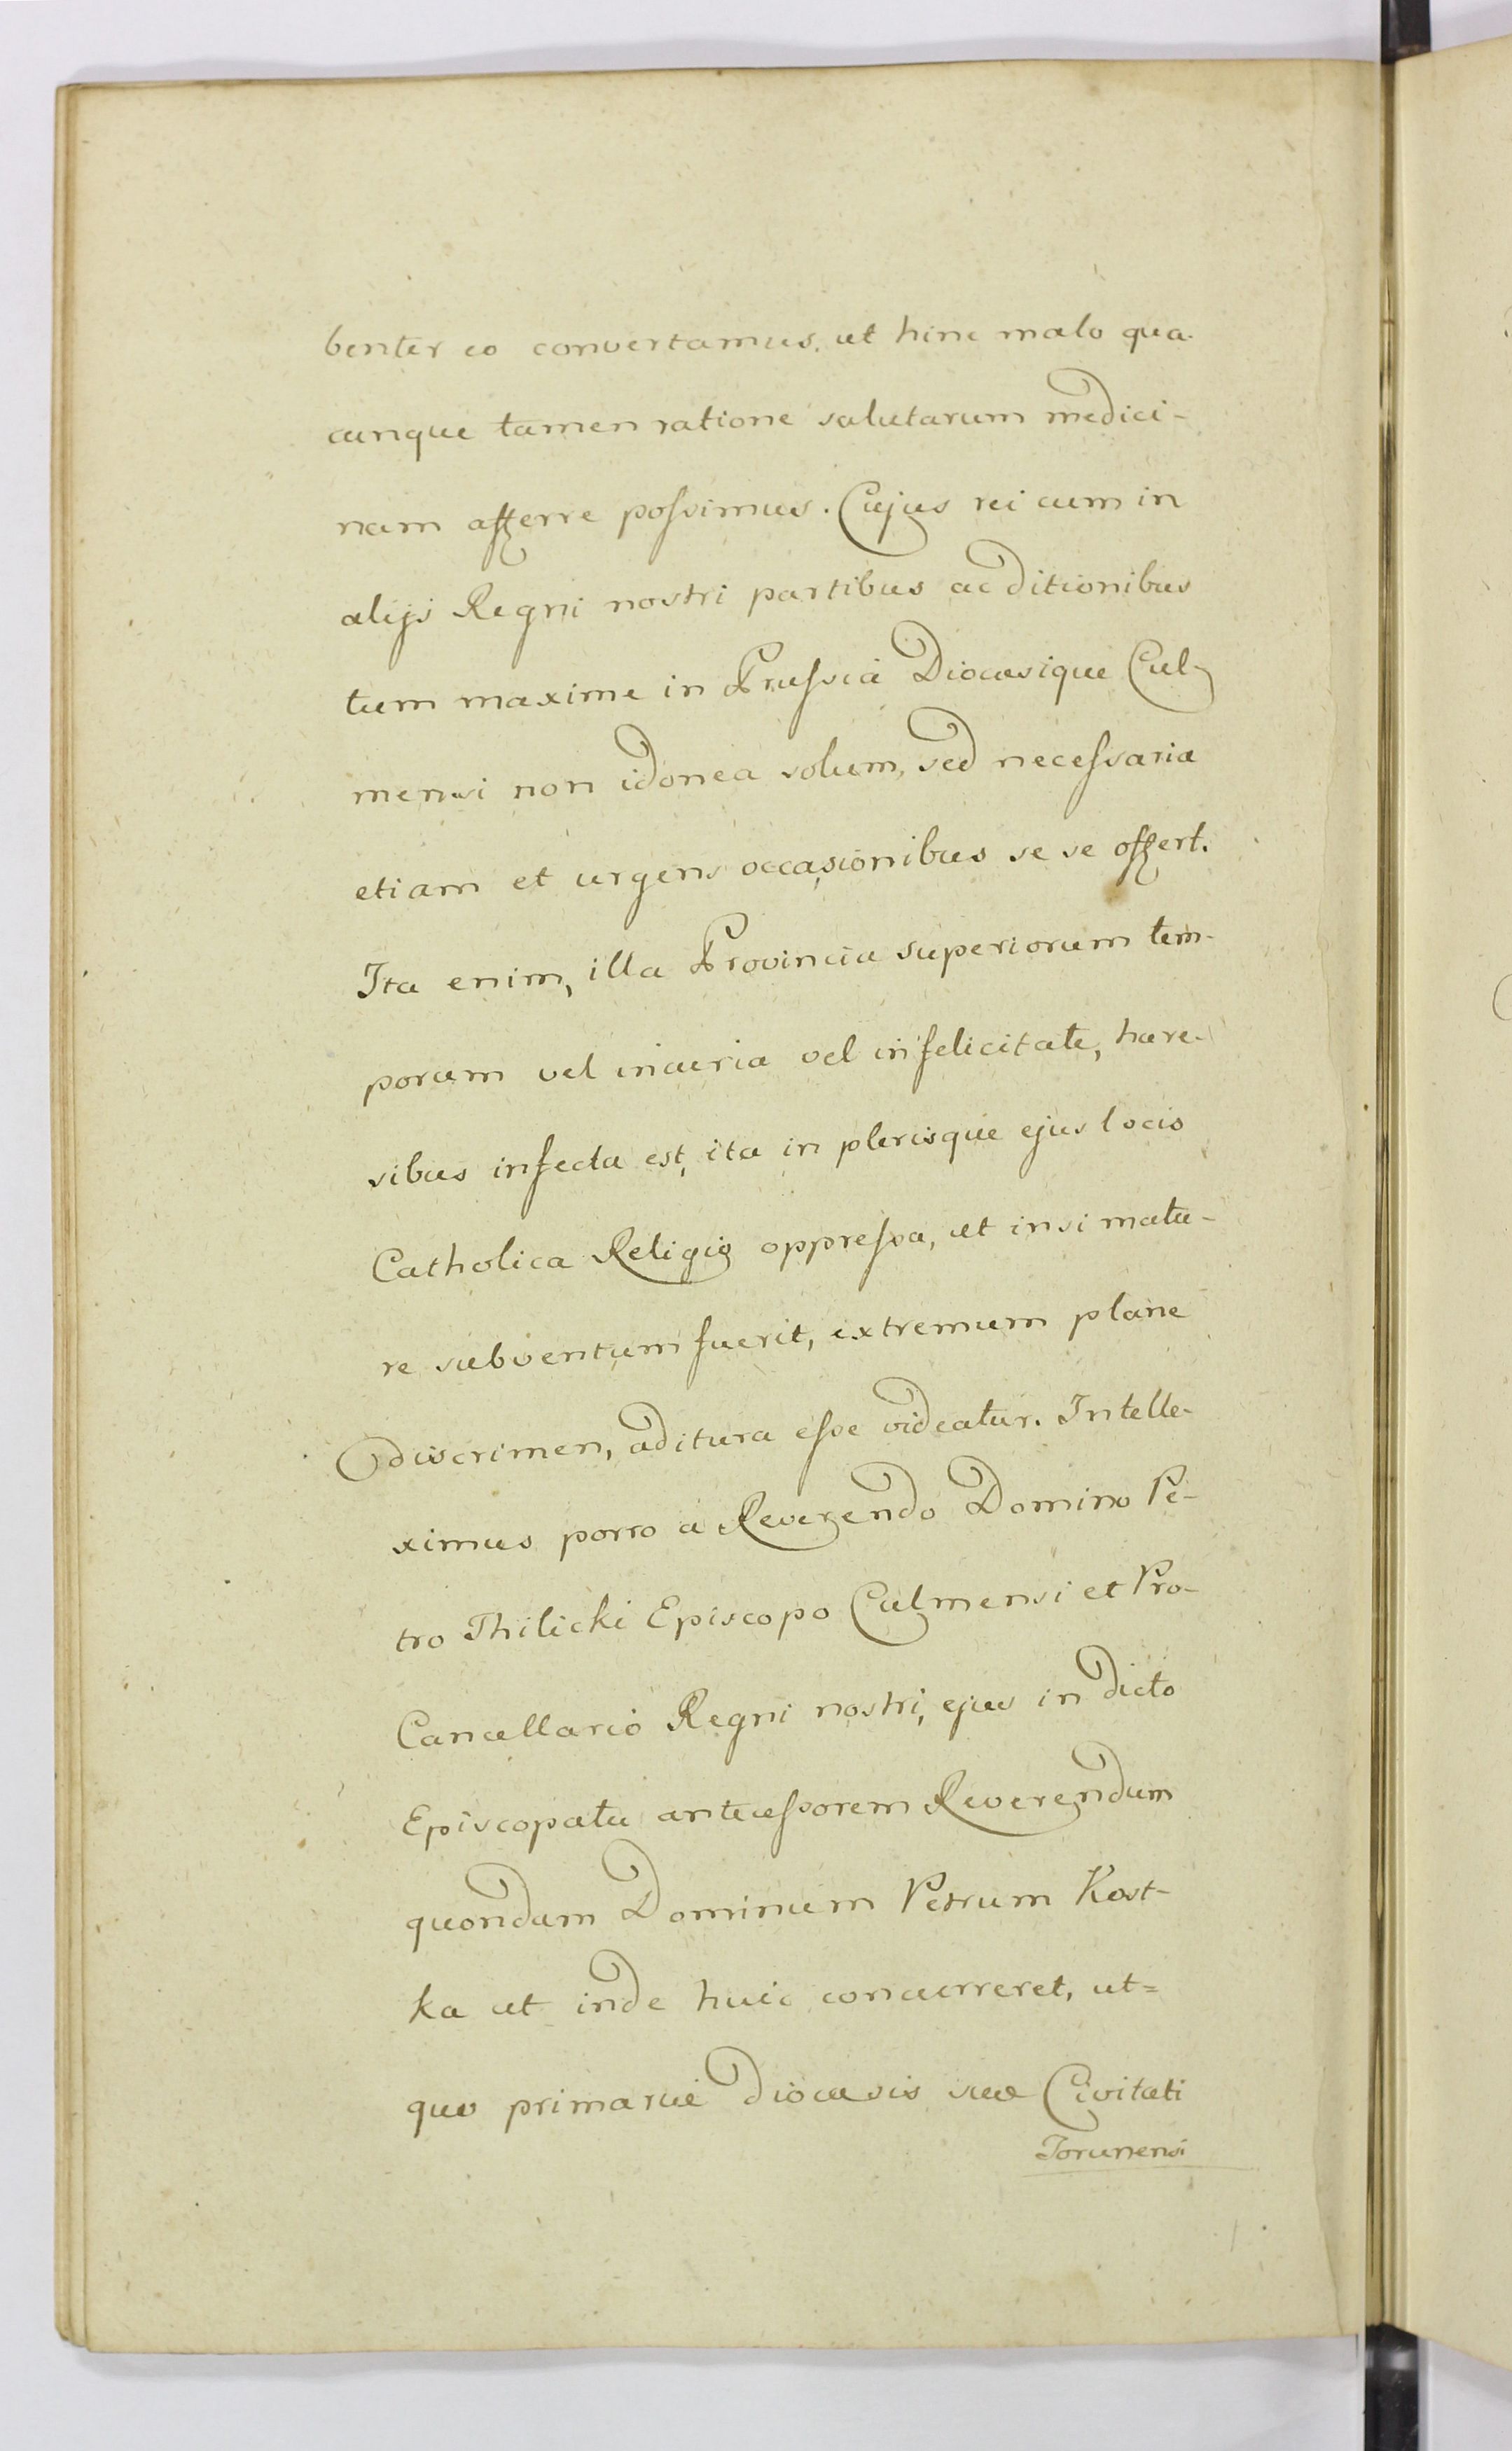 benter eo convertamus, ut hinc malo qua-
cunque tamen ratione salutarum medici-
nam afferre possimus. Cujus rei cum in
alijs Regni nostri partibus ac ditionibus
tum maxime in Prussia Dioecesique Cul-
mensi non idonea solum, sed necessaria
etiam et urgens occasionibus se se offert.
Ita enim, illa Provincia superiorum tem-
porum vel incuria vel infelicitate, hære-
sibus infecta est, ita in plerisque ejus locis
Catholica Religio oppressa, ut insi matu-
re subventum fuerit, extremum plane
discrimen, aditura esse videatur. Intelle-
ximus porro a Reverendo Domino Pe-
tro Thilicki Episcopo Culmensi et Pro-
Cancellario Regni nostri, ejus in dicto
Episcopatu antecessorem Reverendum
quondam Dominum Petrum Kost-
ka ut inde huic concurreret, ut=
que primariæ dioecesis suæ Civitati
Torunensi